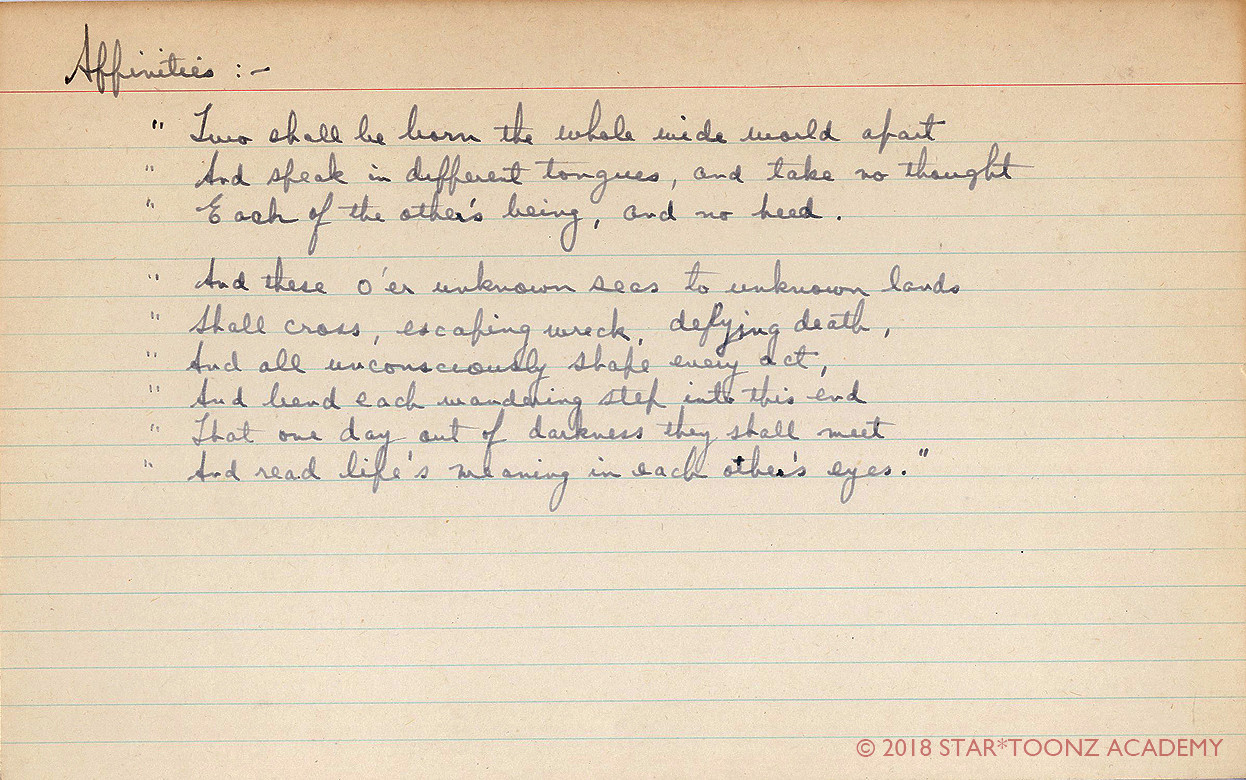 Affinities :-
" Two shall be born the whole wide world apart
" And speak in different tongues, and take no thought
" Each of the other's being, and no heed.
" And these o'er unknown seas to unknown lands
" Shall cross, escaping wreck, defying death,
" And all unconsciously shape every act,
" And bend each wandering step into this end
" That one day out of darkness they shall meet
" And read life's meaning in each other's eyes."
© 2018 STAR*TOONZ ACADEMY